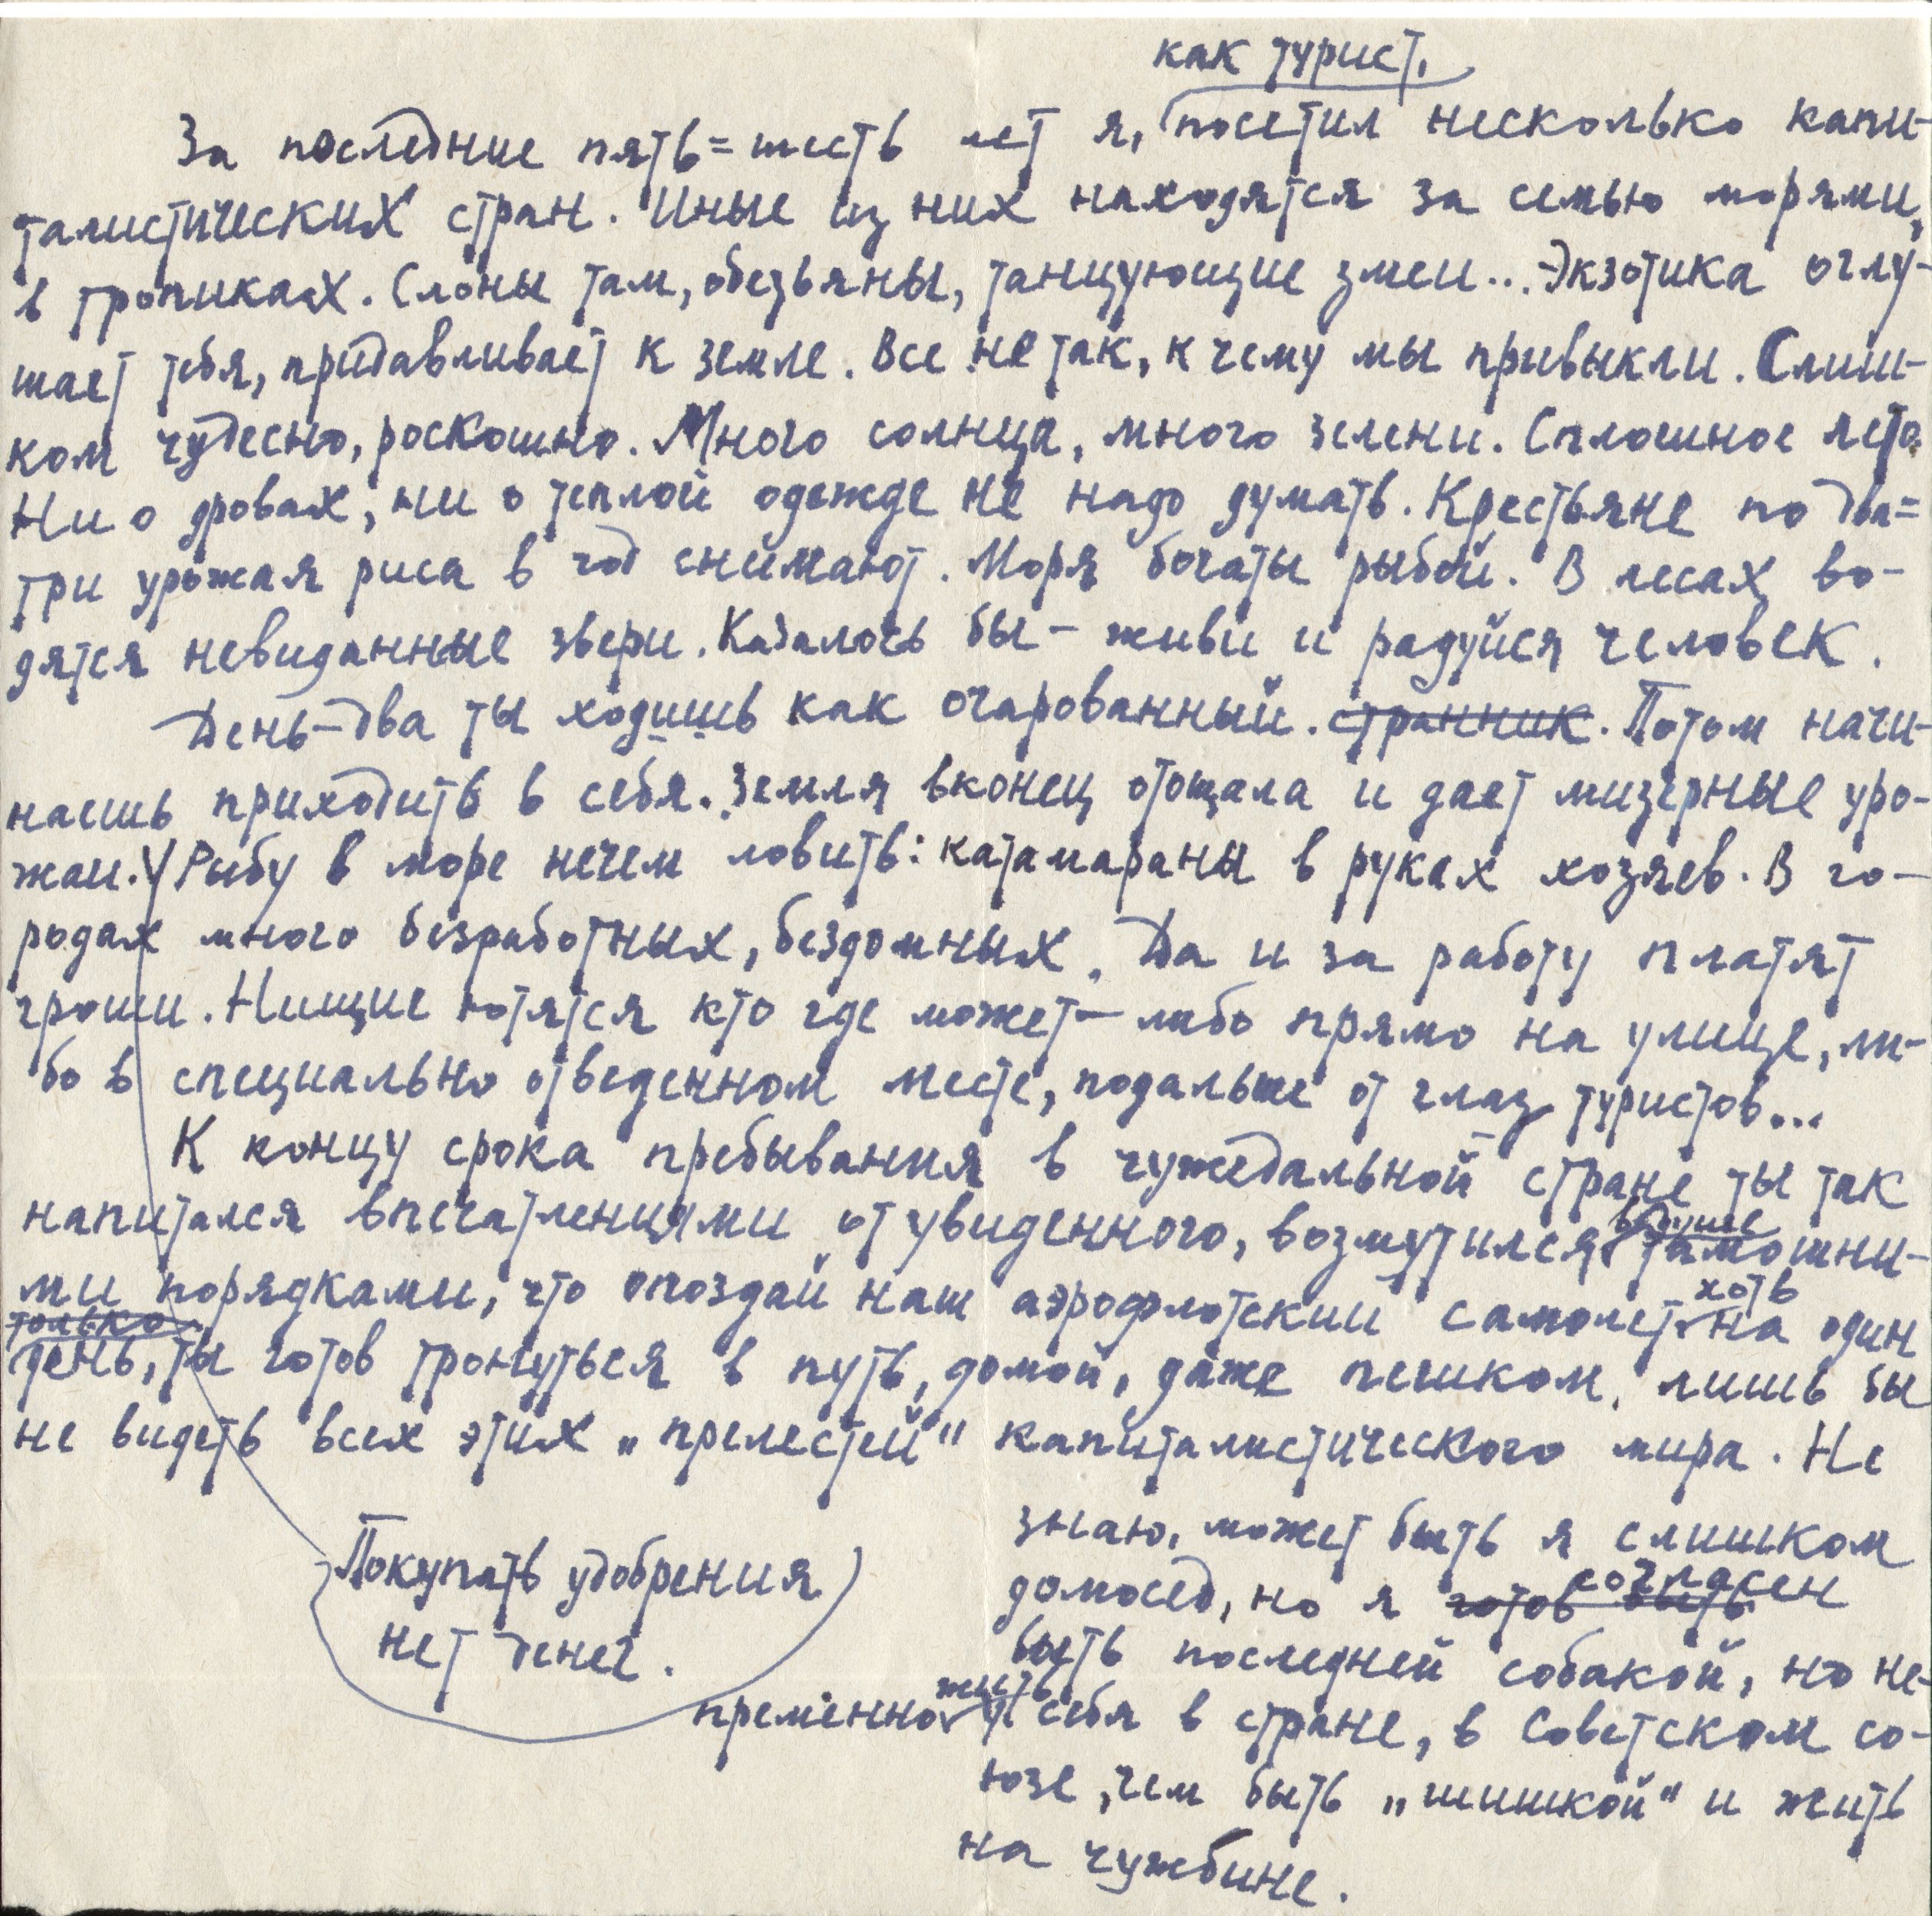 как турист,
За последние пять=шесть лет я, посетил несколько капи-
талистических стран. Иные из них находятся за семью морями,
в тропиках. Слоны там, обезьяны, танцующие змеи... Экзотика оглу-
шает тебя, придавливает к земле. Все не так, к чему мы привыкли. Слиш-
ком чудесно, роскошно. Много солнца, много зелени. Сплошное лето.
Ни о дровах, ни о теплой одежде не надо думать. Крестьяне по два=
три урожая риса в год снимают. Моря богаты рыбой. В лесах во-
дятся невиданные звери. Казалось бы - живи и радуйся человек.
День-два ты ходишь как очарованный. странник. Потом начи-
наешь приходить в себя. Земля вконец отощала и дает мизерные уро-
жаи. Рыбу в море нечем ловить: катамараны в руках хозяев. В го-
родах много безработных, бездомных. Да и за работу платят
гроши. Нищие ютятся кто где может - либо прямо на улице, ли-
бо в специально отведенном месте, подальше от глаз туристов...
К концу срока пребывания в чужедальной стране ты так
напитался впечатлениями от увиденного, возмутился тамошни-
в душе
ми порядками, что опоздай наш аэрофлотский самолет на один
хоть
только
день, ты готов тронуться в путь, домой, даже пешком, лишь бы
не видеть всех этих „прелестей" капиталистического мира. Не
знаю, может быть я слишком
домосед, но я готов быть
согласен
быть последней собакой, но не-
пременно у себя в стране, в Советском со-
жить
юзе, чем быть „шишкой" и жить
на чужбине.
Покупать удобрения
нет денег.